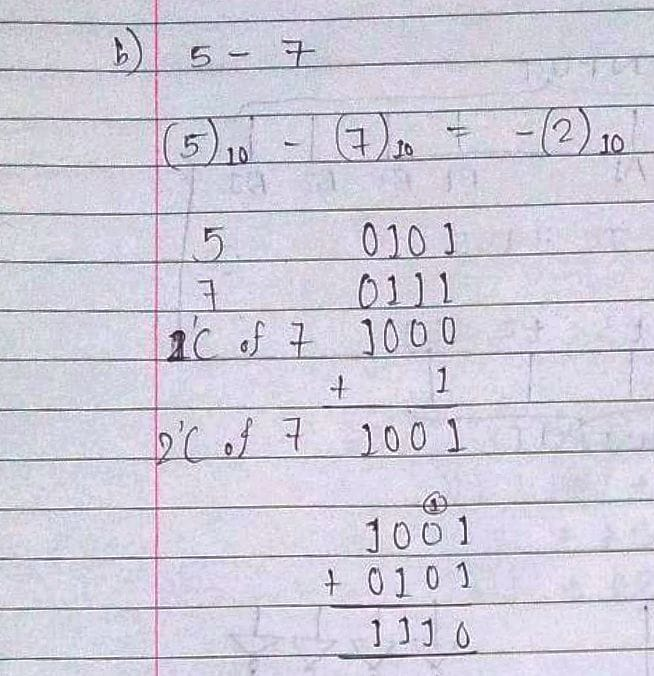 b) 5 - 7
(5)10 - (7)10 = -(2)10
5 0101
7 0111
1'C of 7 1000
+ 1
2'C of 7 1001
1
1001
+ 0101
1110